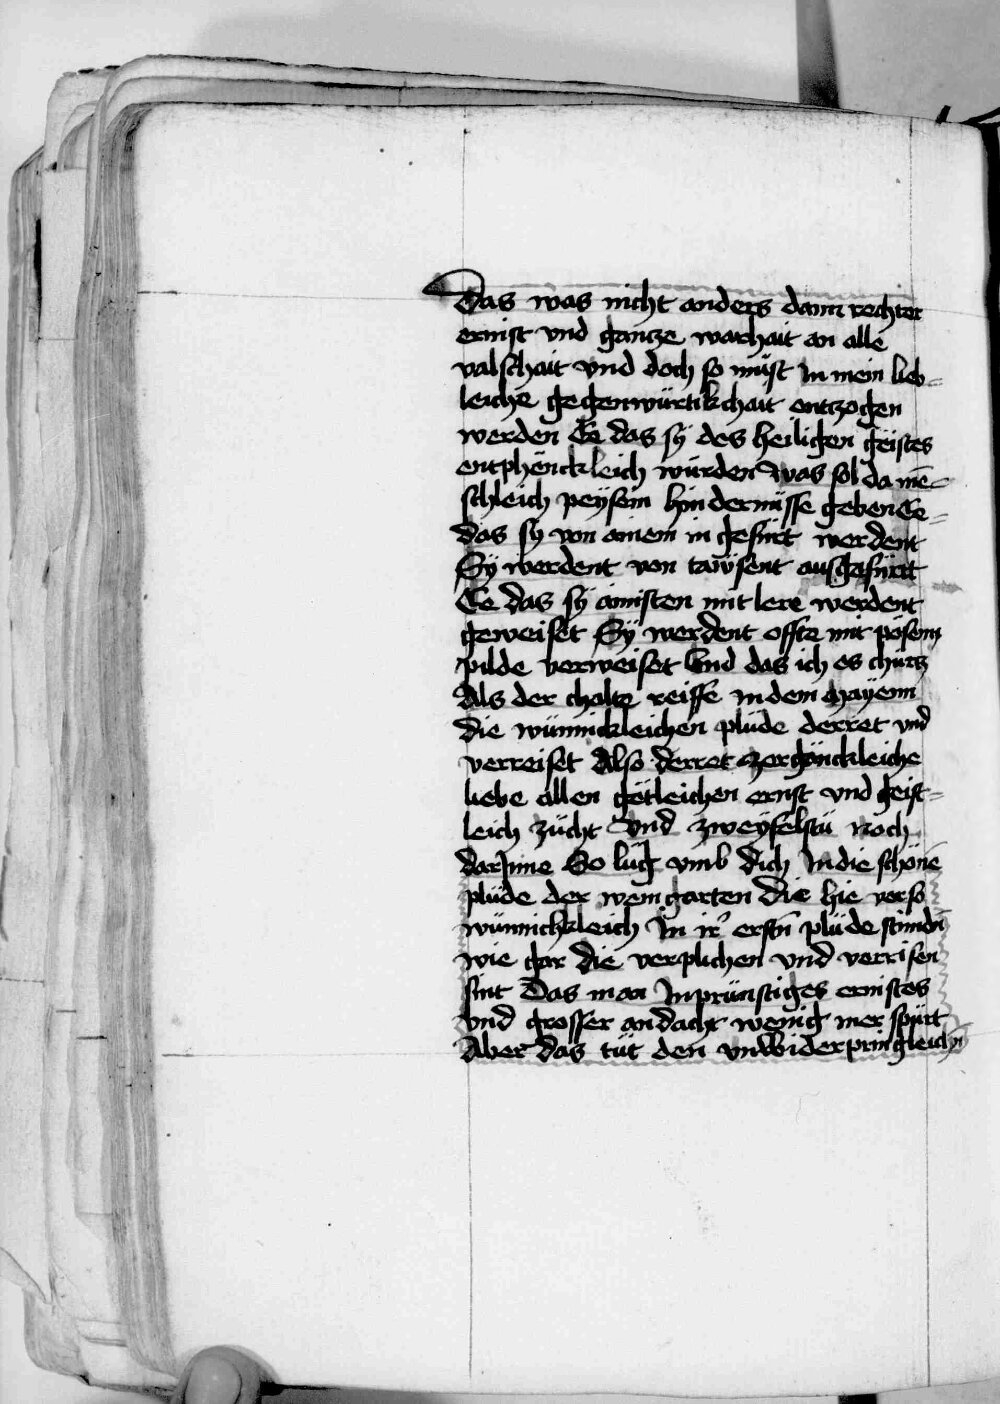 Das was nicht anders dann rechter
ernist vnd gantze warhait an alle
valschait vnd doch so müst In mein lieb=
leiche gegenwürtikchait entzogen
werden Ee das sÿ des heiligen geistes
entphenckleich würden was sol da mē=
schleich peÿsein hindernüsse geben Ee=
das sy von ainem in gefürt werdent
Sÿ werdent von tawsent ausgefürtt
Ee das sÿ ainisten mit lere werdent
geweiset Sÿ werdent offte mit posem
pilde verweiset Vnd das ich es churtz
Als der chalte reiffe in dem mayenn
die wünnickleichen plüde derret vnd
verreiset Also derret zergänckleiche
liebe allen götleichen ernst vnd geist=
leich zücht Vnd zweÿfelstü noch
dar Inne So lüg vmb dich In die schöne
plüde der weingarten Die hie vor so
wünnichkleich In ir erstn plüde stündn
wie gar die verplichen vnd verrisen
sint Das man Inprünstiges ernistes
vnd grosser andacht wenig mer spürt
Aber das tüt den vnwiderpringleichn